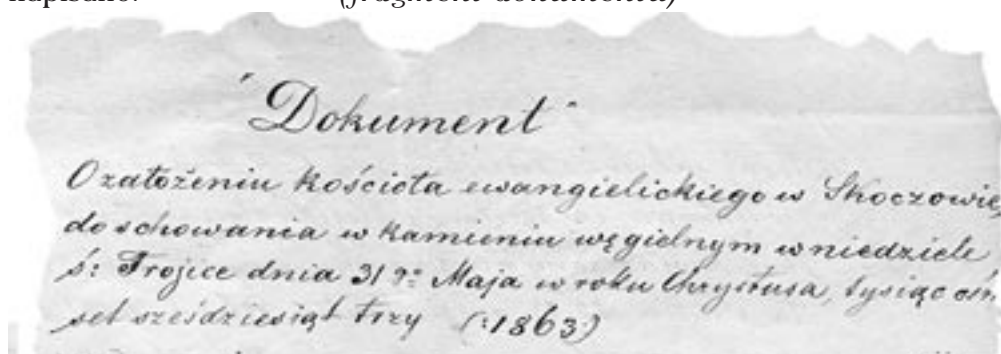 (fragment dokumentu)
"Dokument"
O założeniu kościoła ewangielickiego w Skoczowie,
do schowania w kamieniu węgielnym w niedziele
ś: Trojice dnia 31go Maja w roku Chrystusa, tysiąc ośm
set sześdziesiąt trzy (:1863:)